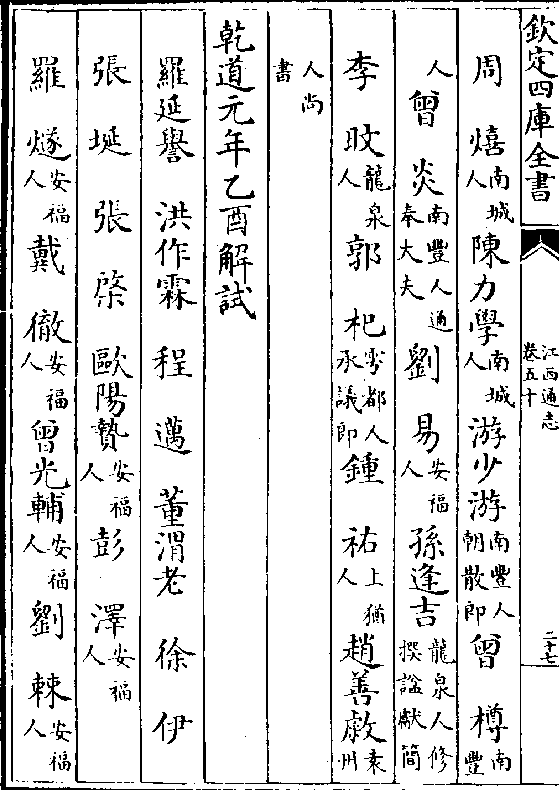 欽定四庫全書
江西通志
卷五十
二十七
周熺南城人陳力學南城人游少游南豐人朝散郎曾樽南豐
人曾炎南豐人通奉大夫劉易安福人孫逢吉龍泉人修撰諡獻簡
李旼龍泉人郭杞雩都人承議郎鍾祐上猶人趙善𢾾袁州
人尚書
乾道元年乙酉解試
羅延譽 洪作霖 程邁 董渭老 徐伊
張埏 張棨 歐陽贄安福人彭澤安福人
羅燧安福人戴徹安福人曾光輔安福人劉棘安福人